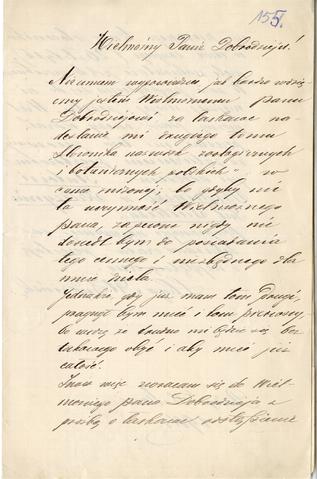 155.
Wielmożny Panie Dobrodzieju!
Nie umiem wypowiedzieć jak bardzo wdzię-
czny jestem Wielmożnemu panu
Dobrodziejowi za łaskawe na-
desłanie mi drugiego tomu
Słownika nazwisk zoologicznych
i botanicznych polskich" w
cenie zniżonej; bo gdyby nie
ta uczynność Wielmożnego
pana, zapewne nigdy nie
doszedł bym do posiadania
tego cennego i niezbędnego dla
mnie dzieła.
Jednakże gdy już mam tom drugi,
pragnął bym mieć i tom pierwszy,
bo widzę że trudno mi będzie się bez
takowego obyć i aby mieć już
całość.
Znów więc zwracam się do Wiel-
możnego pana Dobrodzieja z
prośbą o łaskawe odstąpienie